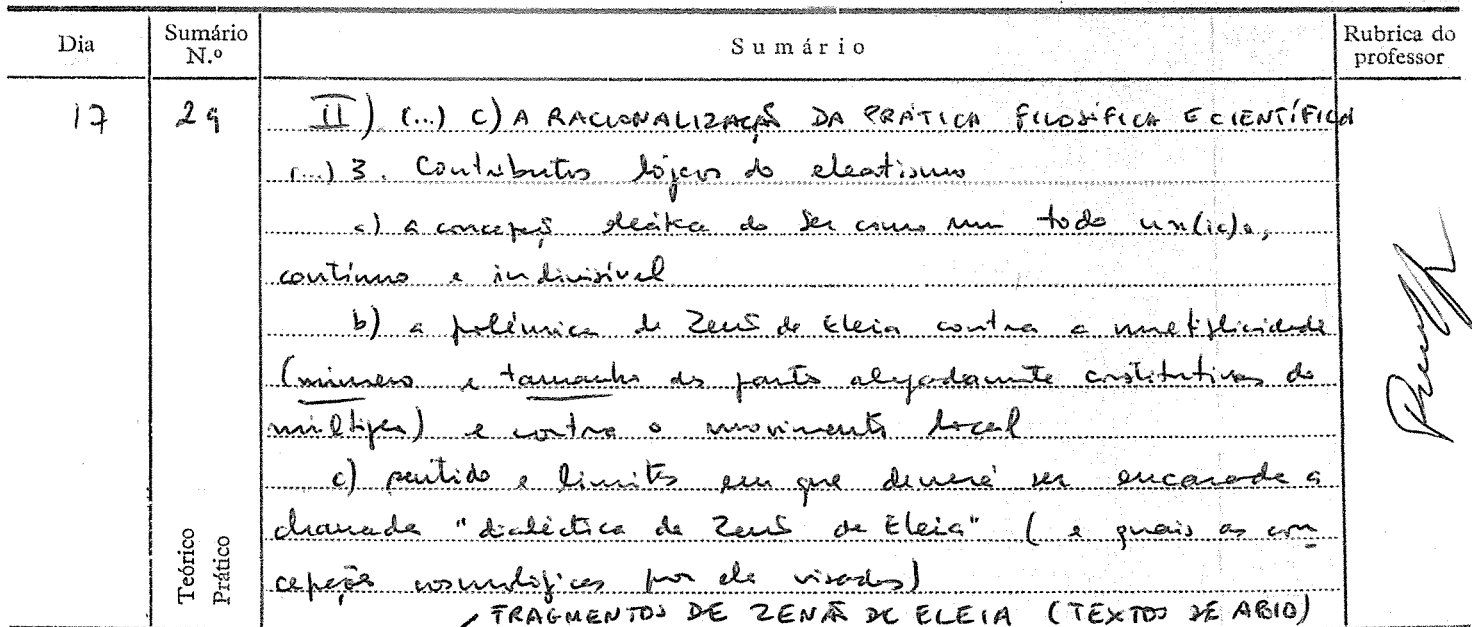 Dia Sumário N.º Sumário Rubrica do professor
17 29 II) (...) C) A RACIONALIZAÇÃO DA PRÁTICA FILOSÓFICA E CIENTÍFICA
(...) 3. Contributos lógicos do eleatismo
a) a concepção eleática do Ser como um todo un(ic)o,
contínuo e indivisível
b) a polémica de Zenão de Eleia contra a multiplicidade
(número e tamanho das partes alegadamente constitutivas do
múltiplo) e contra o movimento local
c) sentido e limites em que deverá ser encarada a
chamada "dialéctica de Zenão de Eleia" (e quais as con
cepções cosmológicas por ele visadas)
Teórico
Prático
FRAGMENTOS DE ZENÃO DE ELEIA (TEXTOS DE APOIO)